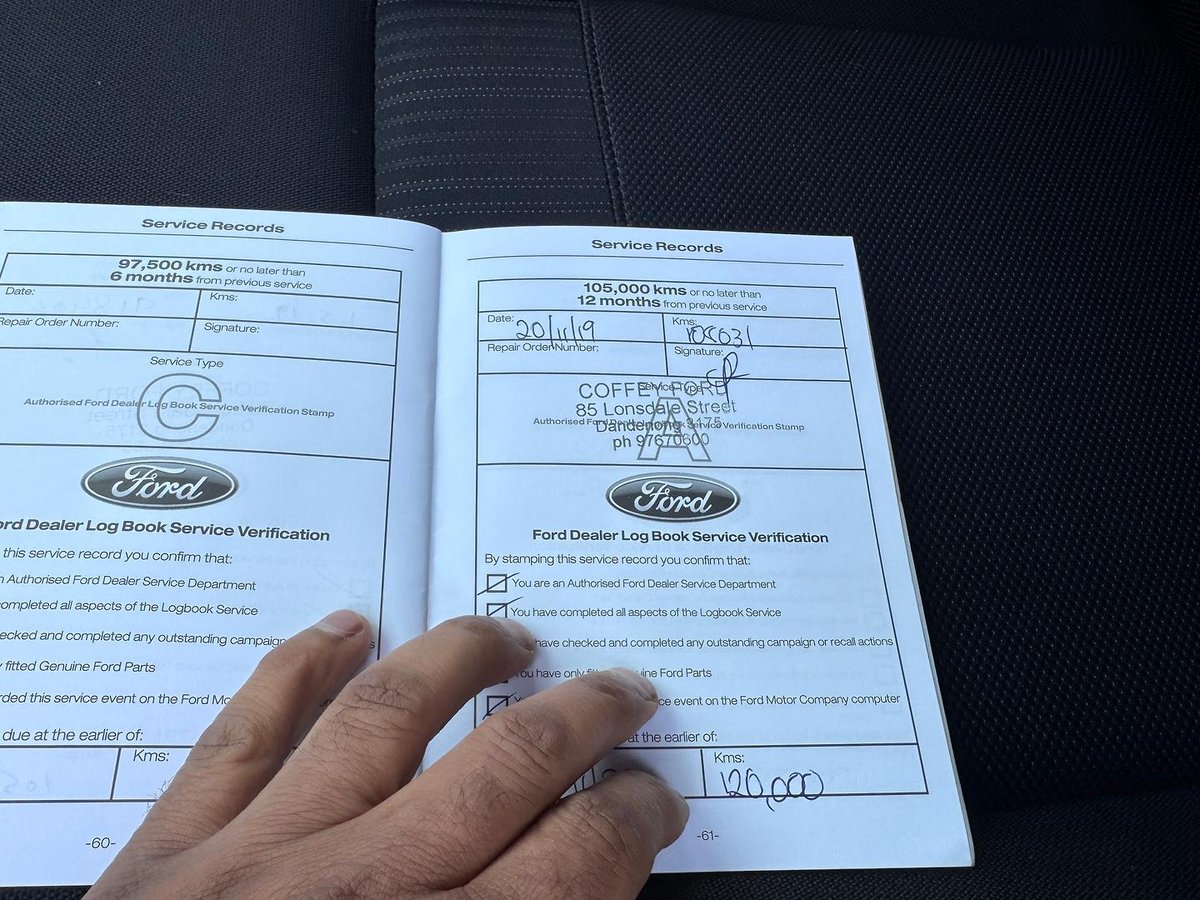 Service Records
97,500 kms or no later than
6 months from previous service
Date:
Kms:
Repair Order Number:
Signature:
Service Type
C
Authorised Ford Dealer Log Book Service Verification Stamp
Ford
ord Dealer Log Book Service Verification
this service record you confirm that:
n Authorised Ford Dealer Service Department
ompleted all aspects of the Logbook Service
ecked and completed any outstanding campaign
y fitted Genuine Ford Parts
rded this service event on the Ford Mo
due at the earlier of:
Kms:
-60-
Service Records
105,000 kms or no later than
12 months from previous service
Date: 20/11/19
Kms:
Repair Order Number:
Signature:
Service Type
COFFEY FORD
85 Lonsdale Street
Authorised Ford Dealer Log Book Service Verification Stamp
Dandenong 3175
ph 97670600
A
Ford
Ford Dealer Log Book Service Verification
By stamping this service record you confirm that:
You are an Authorised Ford Dealer Service Department
You have completed all aspects of the Logbook Service
have checked and completed any outstanding campaign or recall actions
You have only fitted Genuine Ford Parts
ce event on the Ford Motor Company computer
at the earlier of:
Kms:
120,000
-61-